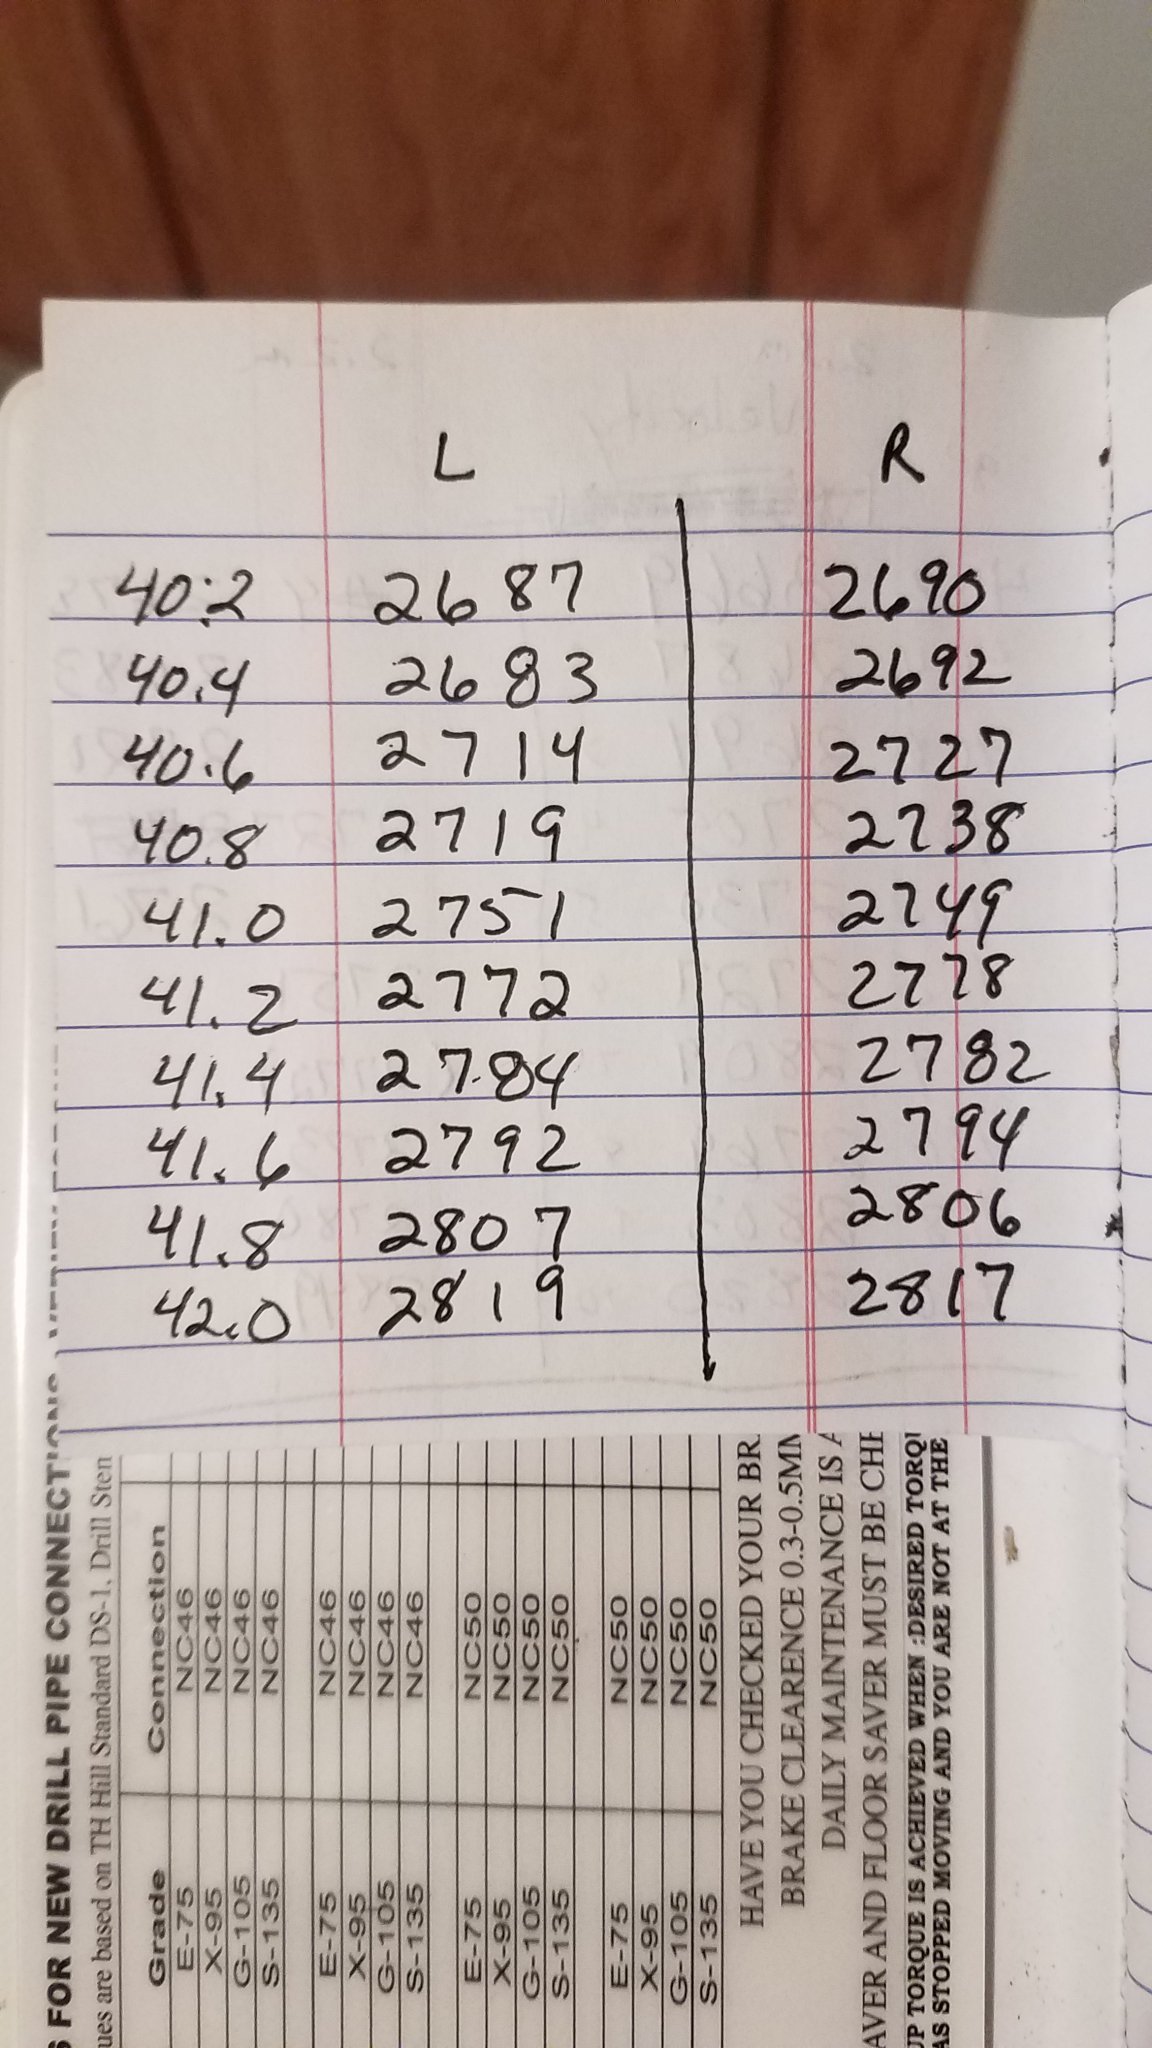 L R
40.2 2687 2690
40.4 2683 2692
40.6 2714 2727
40.8 2719 2738
41.0 2751 2749
41.2 2772 2778
41.4 2784 2782
41.6 2792 2794
41.8 2807 2806
42.0 2819 2817
FOR NEW DRILL PIPE CONNECTIONS
ues are based on TH Hill Standard DS-1, Drill Sten
Grade Connection
E-75 NC46
X-95 NC46
G-105 NC46
S-135 NC46
E-75 NC46
X-95 NC46
G-105 NC46
S-135 NC46
E-75 NC50
X-95 NC50
G-105 NC50
S-135 NC50
E-75 NC50
X-95 NC50
G-105 NC50
S-135 NC50
HAVE YOU CHECKED YOUR BR
BRAKE CLEARENCE 0.3-0.5MM
DAILY MAINTENANCE IS A
AVER AND FLOOR SAVER MUST BE CHE
UP TORQUE IS ACHIEVED WHEN :DESIRED TORQU
AS STOPPED MOVING AND YOU ARE NOT AT THE